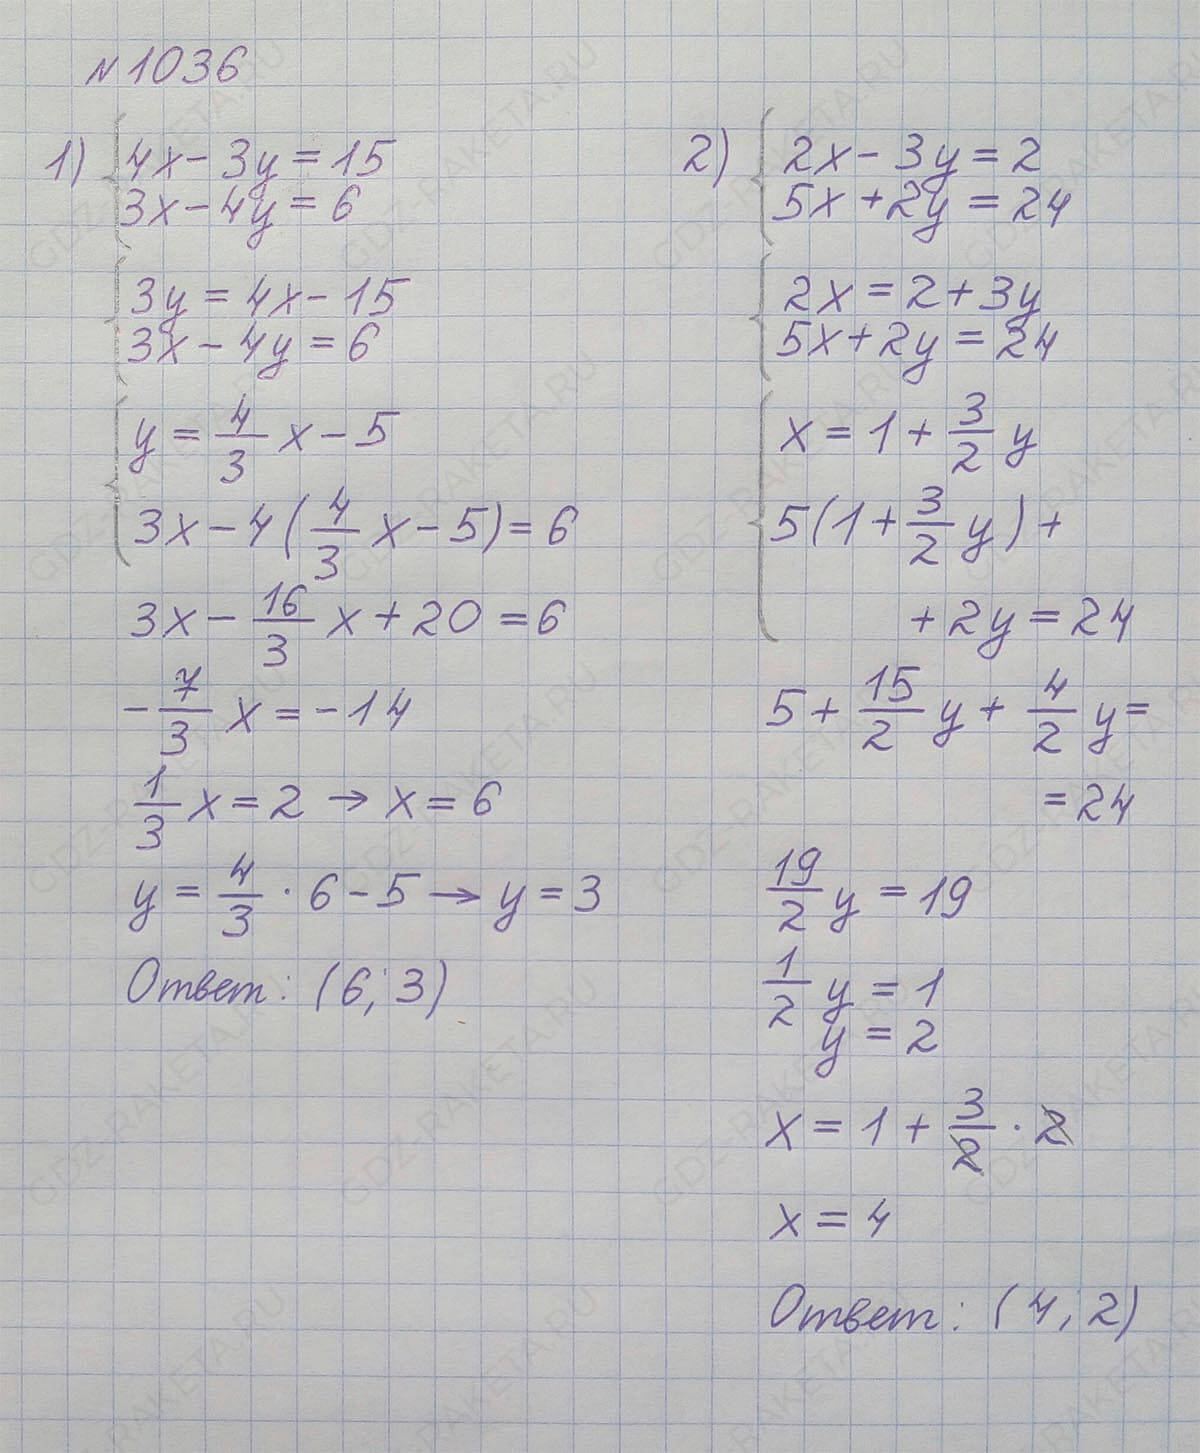 №1036
1) 4x - 3y = 15
3x - 4y = 6
3y = 4x - 15
3x - 4y = 6
y = 4/3 x - 5
3x - 4(4/3 x - 5) = 6
3x - 16/3 x + 20 = 6
-7/3 x = -14
1/3 x = 2 → x = 6
y = 4/3 · 6 - 5 → y = 3
Ответ: (6; 3)
2) 2x - 3y = 2
5x + 2y = 24
2x = 2 + 3y
5x + 2y = 24
x = 1 + 3/2 y
5(1 + 3/2 y) +
+ 2y = 24
5 + 15/2 y + 4/2 y =
= 24
19/2 y = 19
1/2 y = 1
y = 2
x = 1 + 3/2 · 2
x = 4
Ответ: (4; 2)
GDZ-RAKETA.RU